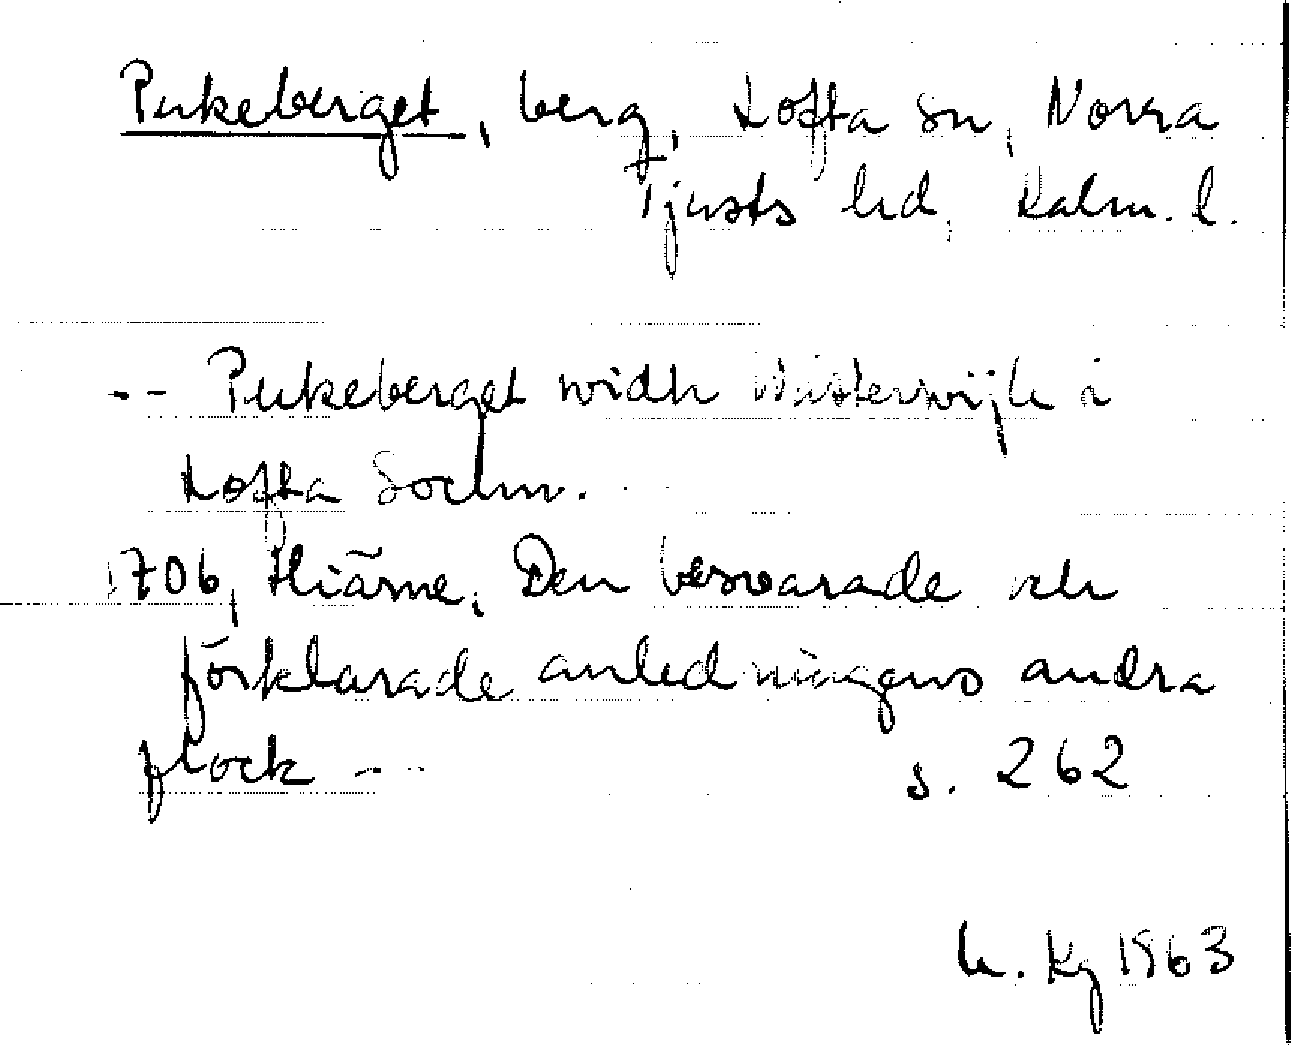 Pukeberget, berg, Lofta sn, Norra
Tjusts hd, Kalm. l.
-- Pukeberget widh Wästerwijk i
Lofta Sochn.
1706, Hiärne, Den besvarade och
förklarade anledningens andra
flock --- s. 262
h. Kg 1963